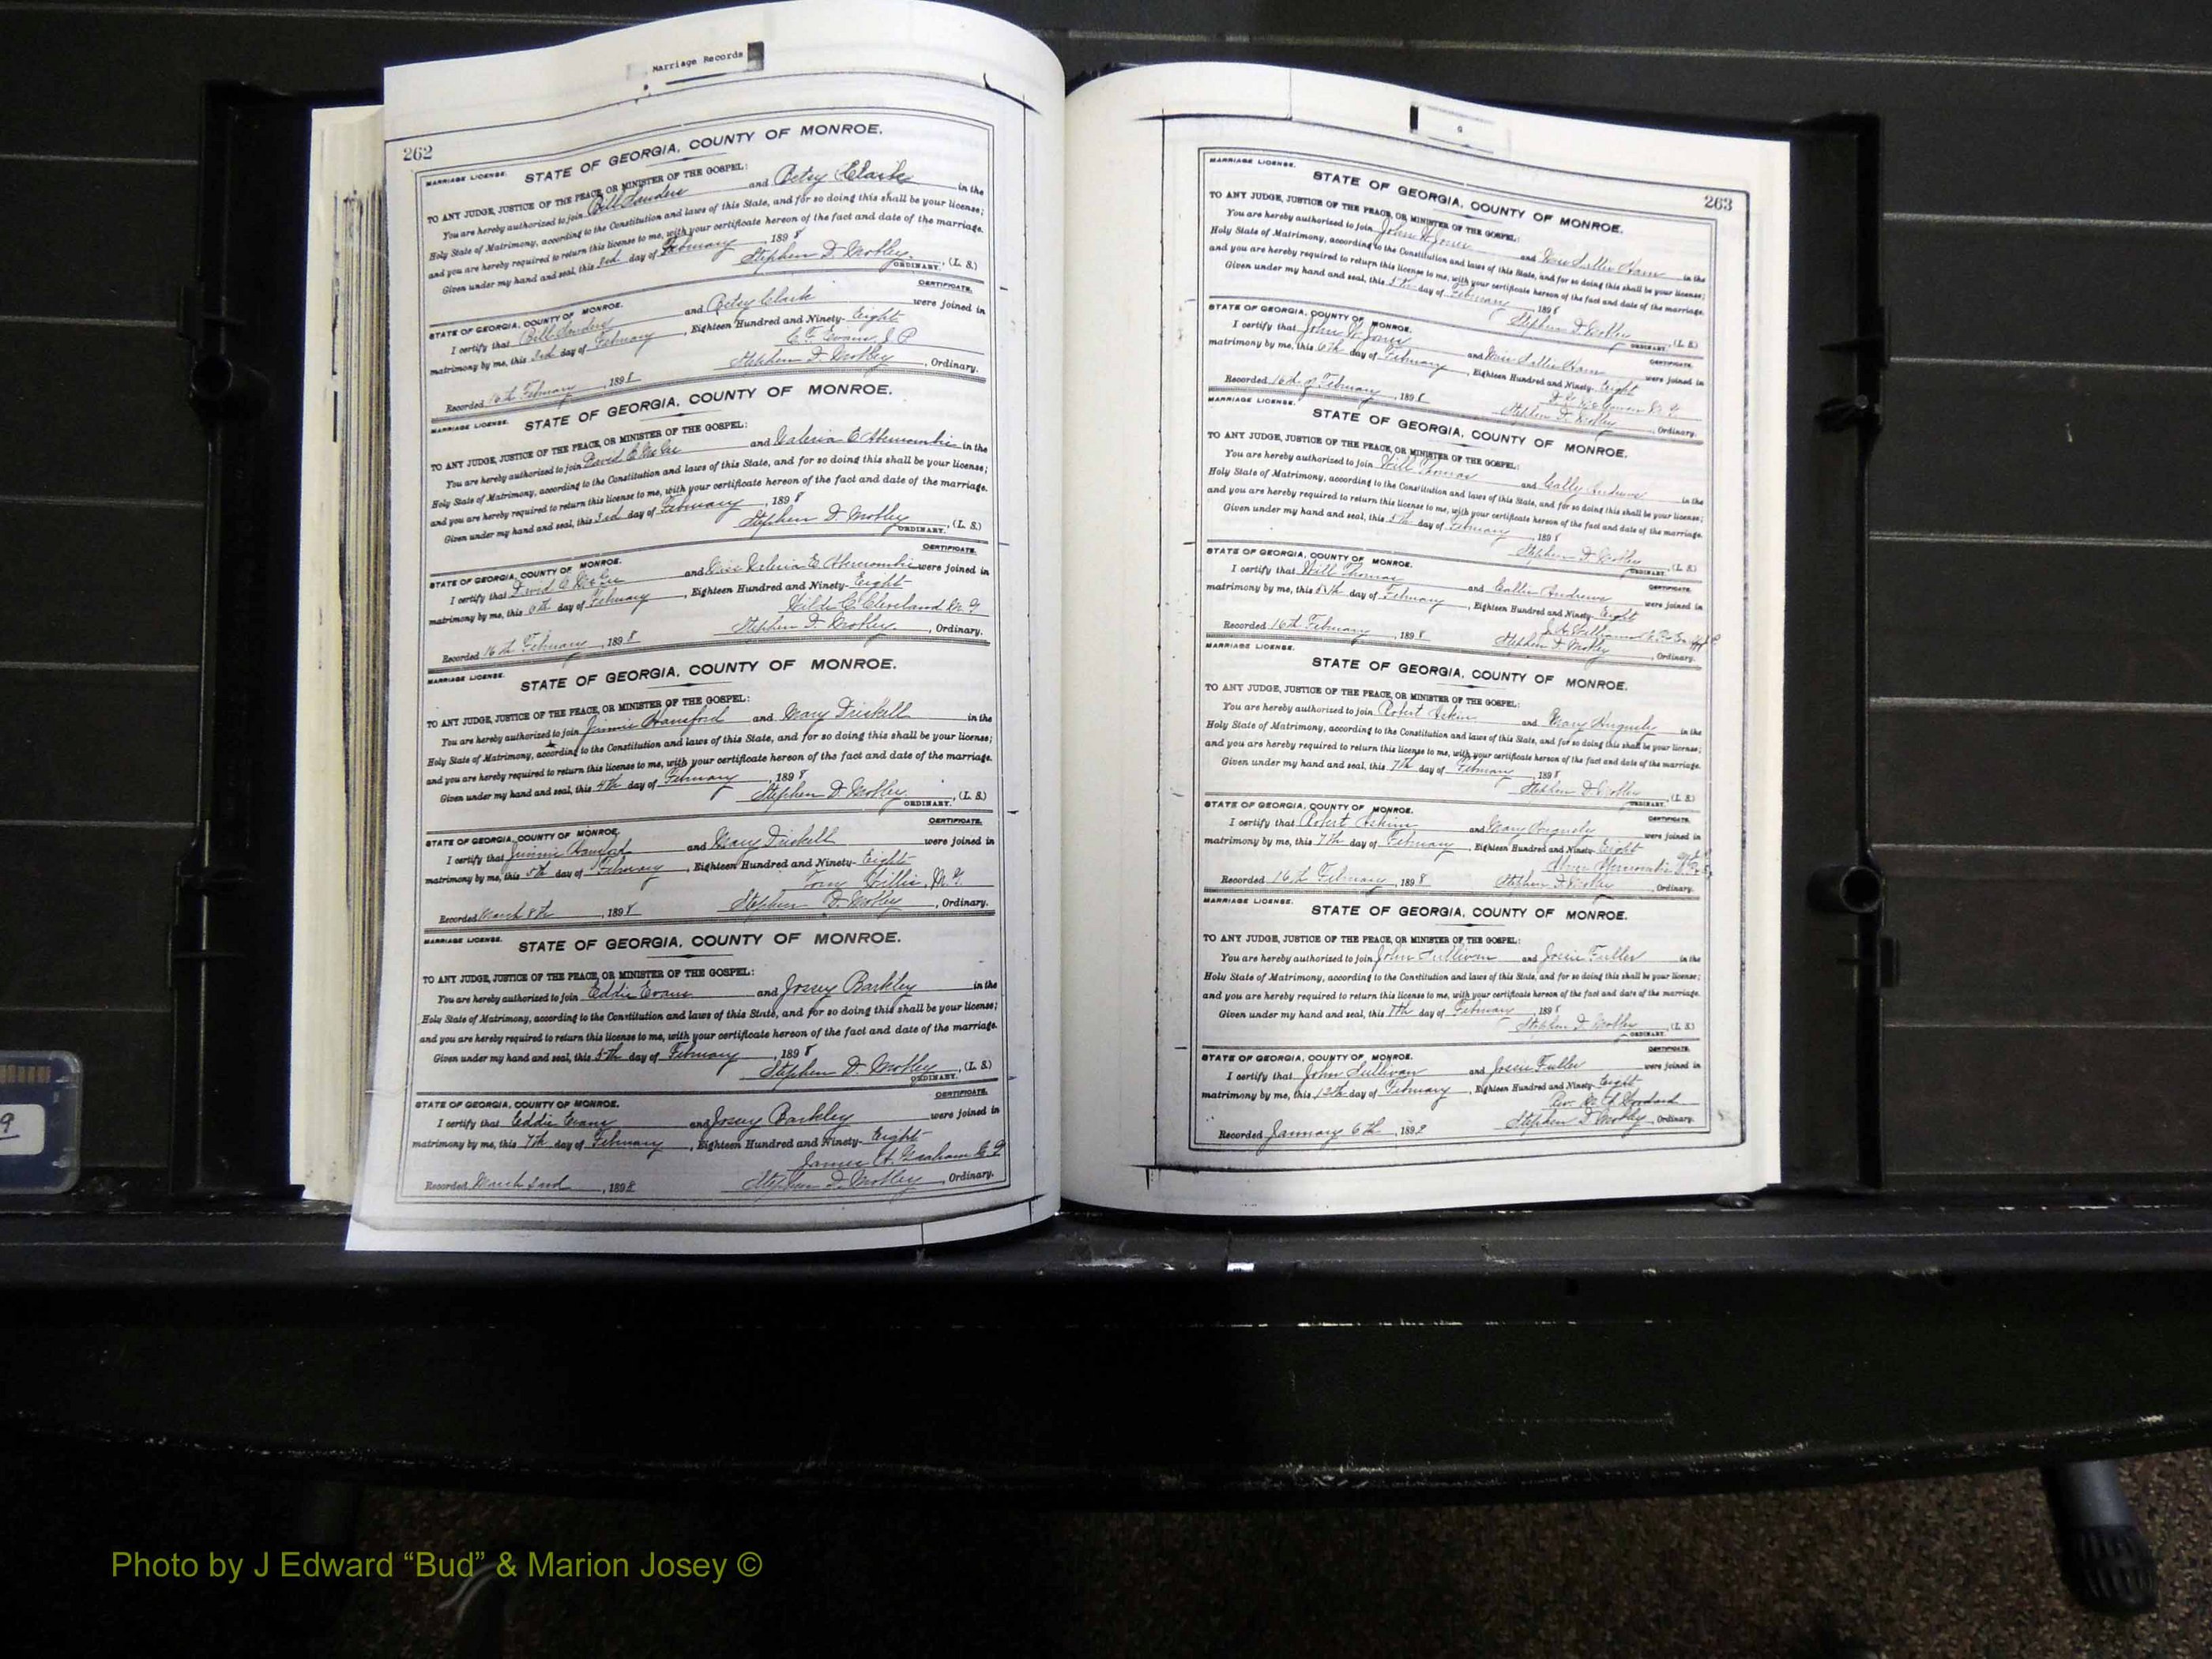 Marriage Records
262
MARRIAGE LICENSE.
STATE OF GEORGIA, COUNTY OF MONROE.
TO ANY JUDGE, JUSTICE OF THE PEACE, OR MINISTER OF THE GOSPEL:
You are hereby authorized to join Bill Sanders and Betsy Clark in the
Holy State of Matrimony, according to the Constitution and laws of this State, and for so doing this shall be your license;
and you are hereby required to return this license to me, with your certificate hereon of the fact and date of the marriage.
Given under my hand and seal, this 3rd day of February, 1898
Stephen D. Mobley, (L. S.)
ORDINARY.
CERTIFICATE.
STATE OF GEORGIA, COUNTY OF MONROE.
I certify that Bill Sanders and Betsy Clark were joined in
matrimony by me, this 3rd day of February, Eighteen Hundred and Ninety-Eight
Evans J. P.
Recorded 16th February, 1898 Stephen D. Mobley, Ordinary.
MARRIAGE LICENSE.
STATE OF GEORGIA, COUNTY OF MONROE.
TO ANY JUDGE, JUSTICE OF THE PEACE, OR MINISTER OF THE GOSPEL:
You are hereby authorized to join David and Valeria E Abercrombie in the
Holy State of Matrimony, according to the Constitution and laws of this State, and for so doing this shall be your license;
and you are hereby required to return this license to me, with your certificate hereon of the fact and date of the marriage.
Given under my hand and seal, this 3rd day of February, 1898
Stephen D. Mobley, (L. S.)
ORDINARY.
CERTIFICATE.
STATE OF GEORGIA, COUNTY OF MONROE.
I certify that David and Miss Valeria E Abercrombie were joined in
matrimony by me, this 6th day of February, Eighteen Hundred and Ninety-Eight
Cleveland M. G.
Recorded 16th February, 1898 Stephen D. Mobley, Ordinary.
MARRIAGE LICENSE.
STATE OF GEORGIA, COUNTY OF MONROE.
TO ANY JUDGE, JUSTICE OF THE PEACE, OR MINISTER OF THE GOSPEL:
You are hereby authorized to join Jimmie Hansford and Mary Driskell in the
Holy State of Matrimony, according to the Constitution and laws of this State, and for so doing this shall be your license;
and you are hereby required to return this license to me, with your certificate hereon of the fact and date of the marriage.
Given under my hand and seal, this 4th day of February, 1898
Stephen D. Mobley, (L. S.)
ORDINARY.
CERTIFICATE.
STATE OF GEORGIA, COUNTY OF MONROE.
I certify that Jimmie Hansford and Mary Driskell were joined in
matrimony by me, this 5th day of February, Eighteen Hundred and Ninety-Eight
Tony Willis, M. G.
Recorded March 8th, 1898 Stephen D. Mobley, Ordinary.
MARRIAGE LICENSE.
STATE OF GEORGIA, COUNTY OF MONROE.
TO ANY JUDGE, JUSTICE OF THE PEACE, OR MINISTER OF THE GOSPEL:
You are hereby authorized to join Eddie Evans and Josey Barkley in the
Holy State of Matrimony, according to the Constitution and laws of this State, and for so doing this shall be your license;
and you are hereby required to return this license to me, with your certificate hereon of the fact and date of the marriage.
Given under my hand and seal, this 5th day of February, 1898
Stephen D. Mobley, (L. S.)
ORDINARY.
CERTIFICATE.
STATE OF GEORGIA, COUNTY OF MONROE.
I certify that Eddie Evans and Josey Barkley were joined in
matrimony by me, this 7th day of February, Eighteen Hundred and Ninety-Eight
James H. Graham
Recorded March 2nd, 1898 Stephen D. Mobley, Ordinary.
263
MARRIAGE LICENSE.
STATE OF GEORGIA, COUNTY OF MONROE.
TO ANY JUDGE, JUSTICE OF THE PEACE, OR MINISTER OF THE GOSPEL:
You are hereby authorized to join John W Jones and Miss Sallie Ham in the
Holy State of Matrimony, according to the Constitution and laws of this State, and for so doing this shall be your license;
and you are hereby required to return this license to me, with your certificate hereon of the fact and date of the marriage.
Given under my hand and seal, this 5th day of February, 1898
Stephen D. Mobley, (L. S.)
ORDINARY.
CERTIFICATE.
STATE OF GEORGIA, COUNTY OF MONROE.
I certify that John W Jones and Miss Sallie Ham were joined in
matrimony by me, this 6th day of February, Eighteen Hundred and Ninety-Eight
Recorded 16th of February, 1898 Stephen D. Mobley, Ordinary.
MARRIAGE LICENSE.
STATE OF GEORGIA, COUNTY OF MONROE.
TO ANY JUDGE, JUSTICE OF THE PEACE, OR MINISTER OF THE GOSPEL:
You are hereby authorized to join Will Thomas and Cally Andrews in the
Holy State of Matrimony, according to the Constitution and laws of this State, and for so doing this shall be your license;
and you are hereby required to return this license to me, with your certificate hereon of the fact and date of the marriage.
Given under my hand and seal, this 5th day of February, 1898
Stephen D. Mobley, (L. S.)
ORDINARY.
CERTIFICATE.
STATE OF GEORGIA, COUNTY OF MONROE.
I certify that Will Thomas and Callie Andrews were joined in
matrimony by me, this day of February, Eighteen Hundred and Ninety-Eight
Williams
Recorded 16th February, 1898 Stephen D. Mobley, Ordinary.
MARRIAGE LICENSE.
STATE OF GEORGIA, COUNTY OF MONROE.
TO ANY JUDGE, JUSTICE OF THE PEACE, OR MINISTER OF THE GOSPEL:
You are hereby authorized to join Robert Askin and Mary Huguely in the
Holy State of Matrimony, according to the Constitution and laws of this State, and for so doing this shall be your license;
and you are hereby required to return this license to me, with your certificate hereon of the fact and date of the marriage.
Given under my hand and seal, this 7th day of February, 1898
Stephen D. Mobley, (L. S.)
ORDINARY.
CERTIFICATE.
STATE OF GEORGIA, COUNTY OF MONROE.
I certify that Robert Askin and Mary Huguely were joined in
matrimony by me, this 7th day of February, Eighteen Hundred and Ninety-Eight
Abercrombie
Recorded 16th February, 1898 Stephen D. Mobley, Ordinary.
MARRIAGE LICENSE.
STATE OF GEORGIA, COUNTY OF MONROE.
TO ANY JUDGE, JUSTICE OF THE PEACE, OR MINISTER OF THE GOSPEL:
You are hereby authorized to join John Sullivan and Jossie Fuller in the
Holy State of Matrimony, according to the Constitution and laws of this State, and for so doing this shall be your license;
and you are hereby required to return this license to me, with your certificate hereon of the fact and date of the marriage.
Given under my hand and seal, this 7th day of February, 1898
Stephen D. Mobley, (L. S.)
ORDINARY.
CERTIFICATE.
STATE OF GEORGIA, COUNTY OF MONROE.
I certify that John Sullivan and Jossie Fuller were joined in
matrimony by me, this 12th day of February, Eighteen Hundred and Ninety-Eight
Rev. Woodard
Recorded January 6th, 1899 Stephen D Mobley, Ordinary.
9
Photo by J Edward “Bud” & Marion Josey ©